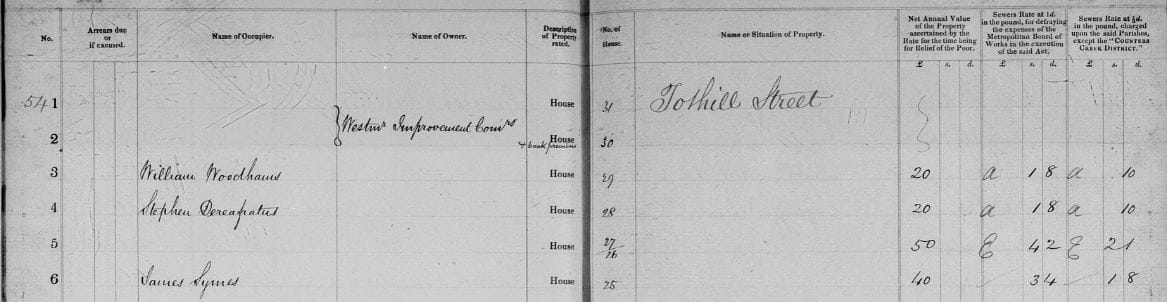 No. Arrears due or if excused. Name of Occupier. Name of Owner. Description of Property rated. No. of House. Name or Situation of Property. Net Annual Value of the Property ascertained by the Rate for the time being for Relief of the Poor. Sewers Rate at 1d. in the pound, for defraying the expenses of the Metropolitan Board of Works in the execution of the said Act; Sewers Rate at ½d. in the pound, charged upon the said Parishes, except the "COUNTERS CREEK DISTRICT."
£ s. d. £ s. d. £ s. d.
541 House 31 Tothill Street
2 Westmr Improvement Comrs House & back premises 30
3 William Woodhams House 29 20 a 1 8 a 10
4 Stephen House 28 20 a 1 8 a 10
5 House 27/26 50 E 4 2 E 2 1
6 James Symes House 25 40 3 4 1 8